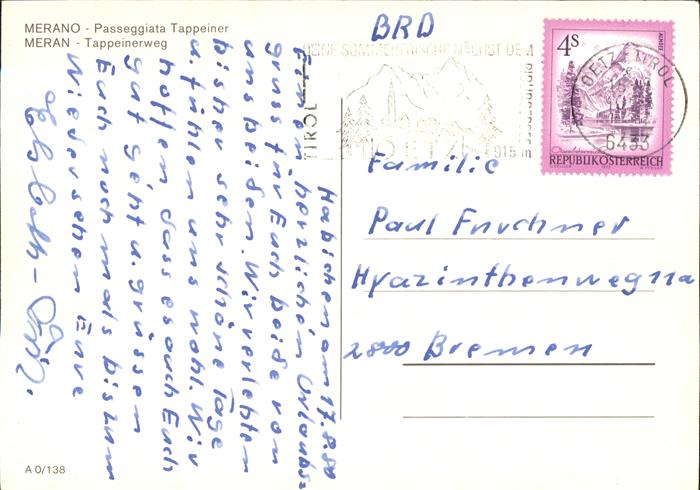 MERANO - Passeggiata Tappeiner
MERAN - Tappeinerweg
Habichen am 17.8.80
Einen herzlichen Urlaubs=
gruss für Euch beide von
uns beiden. Wir verlebten
bisher sehr schöne Tage
u. fühlen uns wohl. Wir
hoffen dass es auch Euch
gut geht u. grüssen
Euch noch mals bis zum
Wiedersehen Eure
Elsbeth - Fritz.
A 0/138
BRD
DEINE SOMMERFRISCHE NÄCHST DEM
TIROL
OETZ
915 m
OETZ TIROL
6433
4S
REPUBLIK ÖSTERREICH
Familie
Paul Fruchner
Hyazinthenweg 11a
2800 Bremen